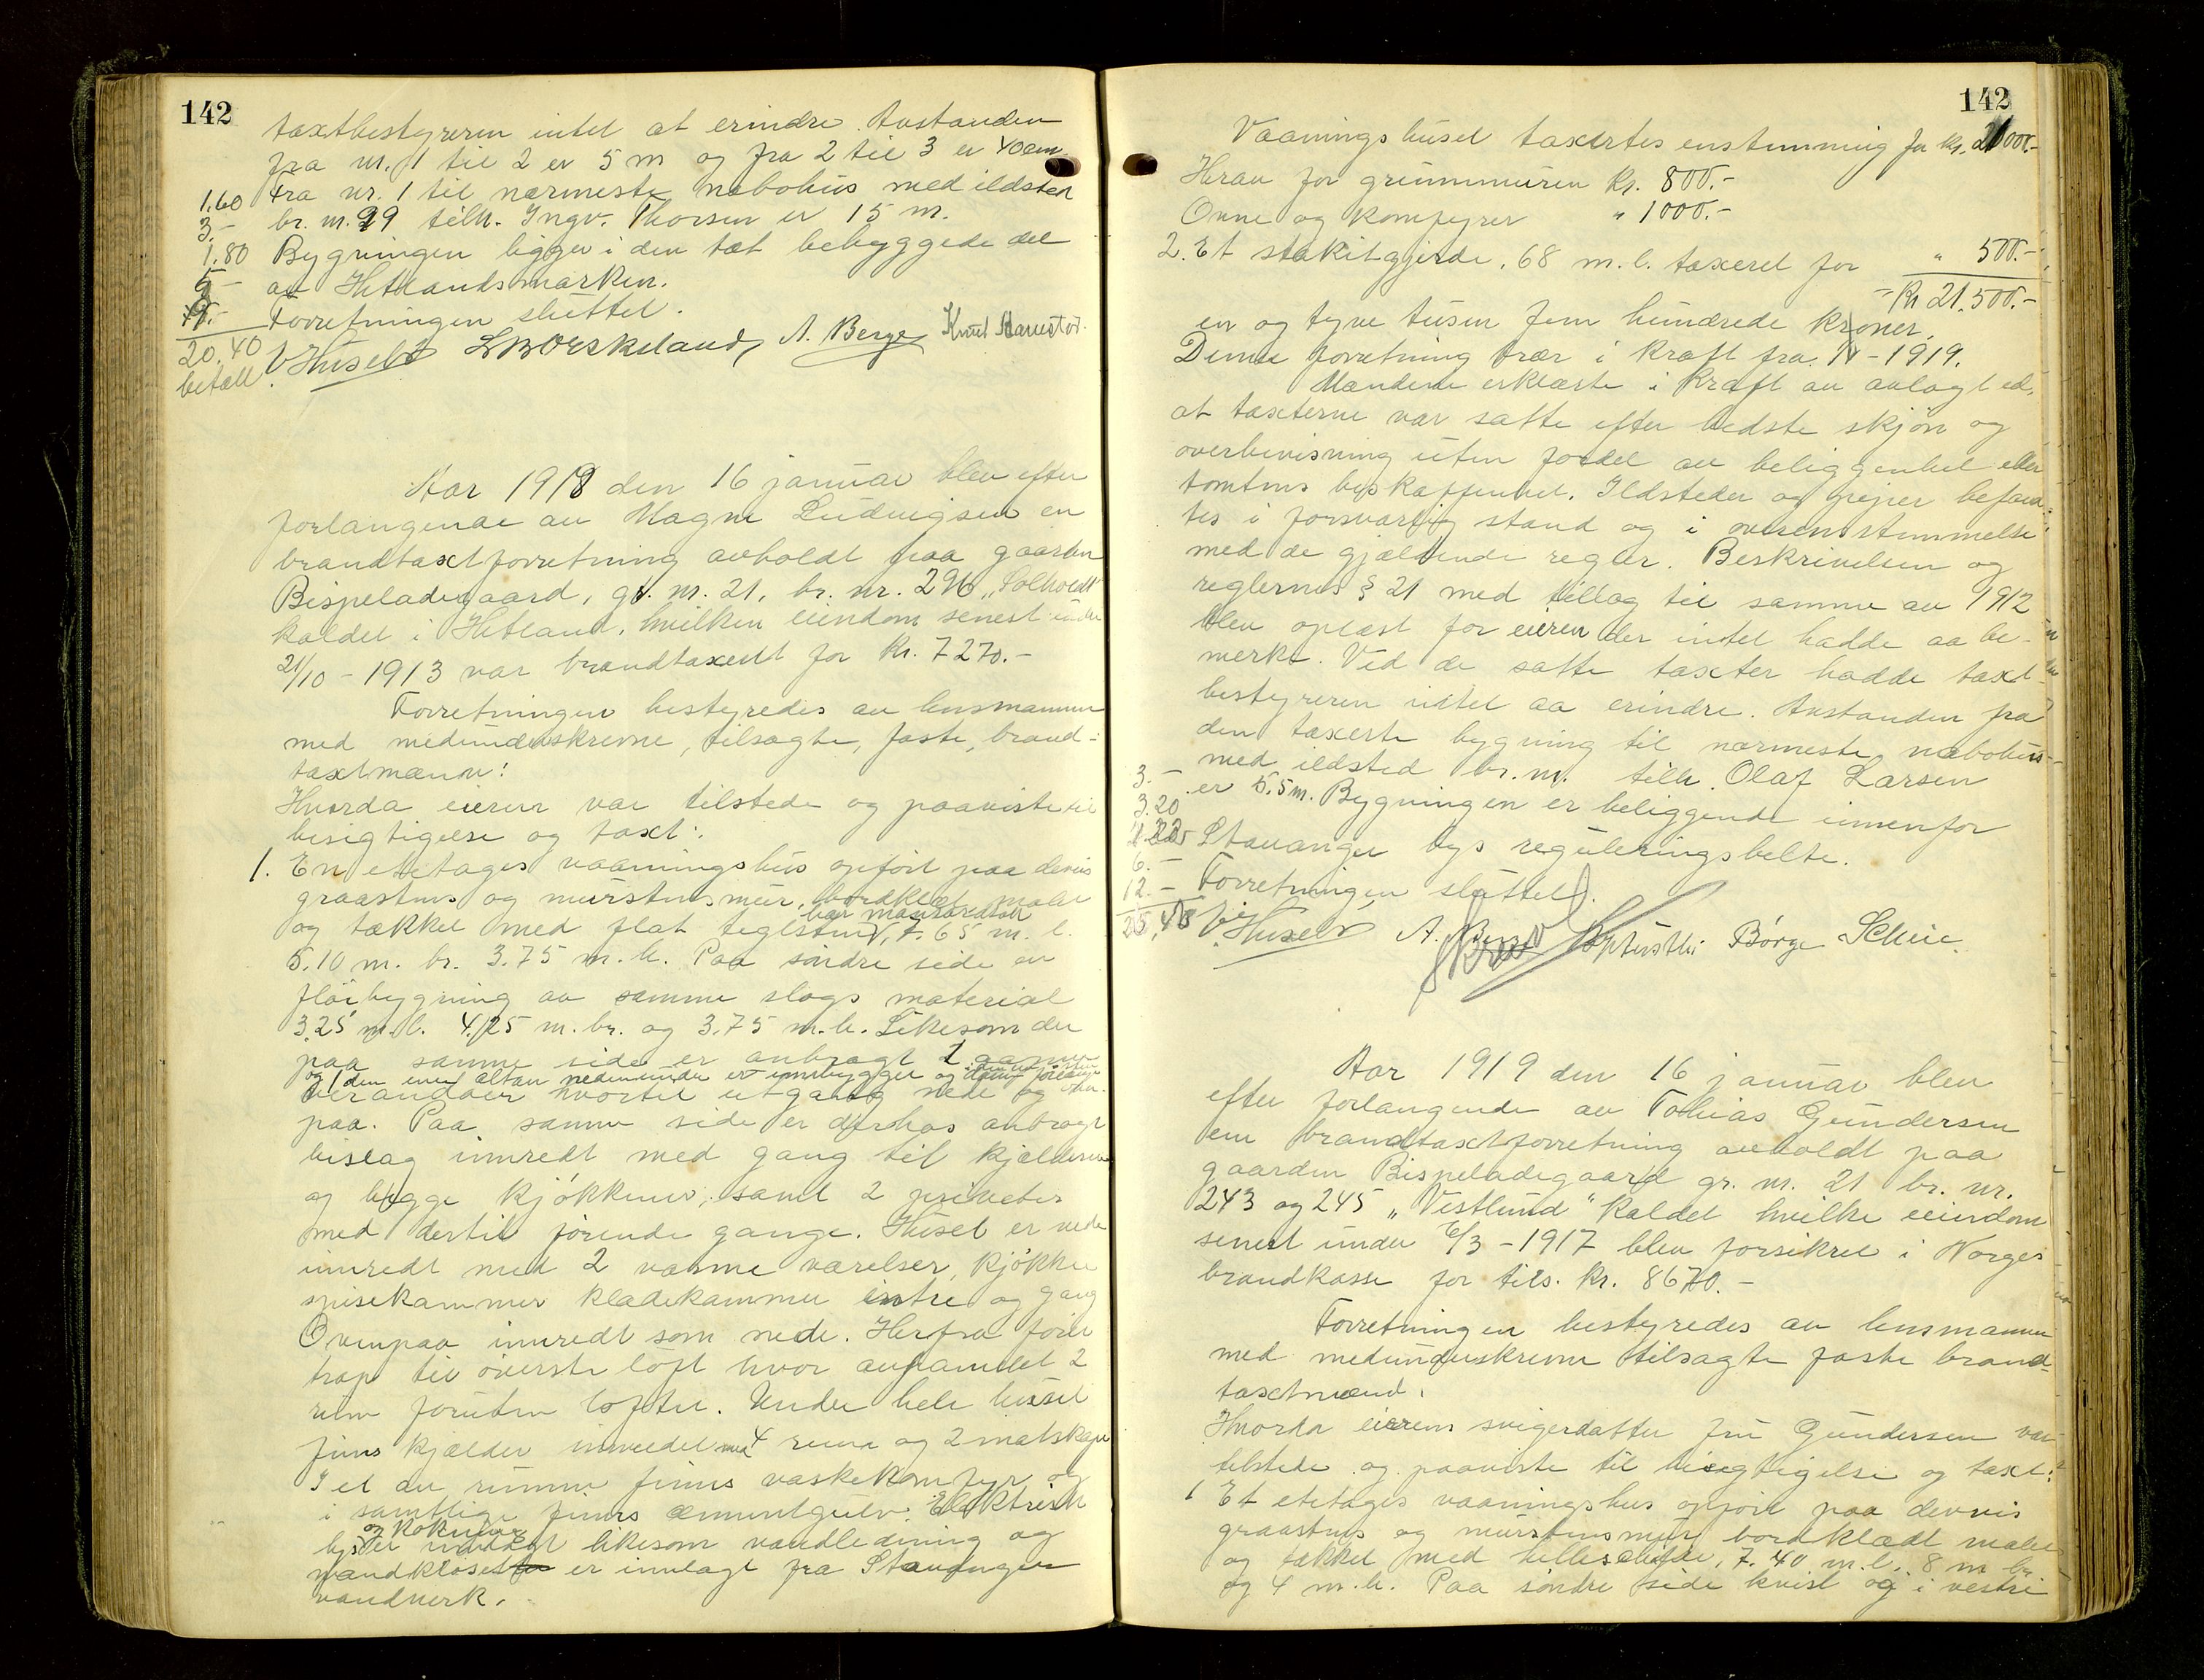 142
taxtbestyreren intet at erindre. Avstanden
fra nr. 1 til 2 er 5 m og fra 2 til 3 er 40 cm.
1.60 Fra nr. 1 til nærmeste nabohus med ildsted
3.- br. nr. 99 tilh. Ingv. Thorsen er 15 m.
1.80 Bygningen ligger i den tæt bebyggede del
5 - av Hetlandsmarken.
Forretningen sluttet.
20.40
betalt
Husebø A. Berge
Aar 1918 den 16 januar blev efter
forlangende av Magne Ludvigsen en
brandtaxtforretning avholdt paa gaarden
Bispeladegaard, gr. nr. 21, br. nr. 296 „Solhordt"
kaldet i Hetland, hvilken eiendom senest under
21/10 - 1913 var brandtaxert for kr. 7270.-
Forretningen bestyredes av lensmannen
med medunderskrevne, tilsagte, faste, brand-
taxtmænn:
Hvorda eieren var tilstede og paaviste til
besigtigelse og taxt:
1. En etetages vaaningshus opført paa dervis
graastens og murstensmur, bordklædt malt
og tækket med flat teglsten, 7.65 m. l.
5.10 m. br. 3.75 m. h. Paa søndre side en
fløibygning av samme slags material
3.25 m. l. 4.25 m. br. og 3.75 m. h. Likesom der
paa samme side er anbragt 2
og den ene altan nedenunder er innbygget og
verandaer hvortil utgang nede og oven-
paa. Paa samme side er derhos anbragt
bislag innredt med gang til kjælderen
og begge kjøkkener, samt 2 priveter
med dertil førende gange. Huset er nede
innredt med 2 varme værelser, kjøkken
spisekammer klædekammer entre og gang
Ovenpaa innredt som nede. Herfra fører
trap til øverste loft hvor avpanelet 2
rum foruten lofter. Under hele huset
finns kjælder innredet med 4 rum og 2 matskape
I et av rumme finns vaskekomfyr og
i samtlige finns cementgulv. Elektrisk
og kokning
lys er innlagt likesom vandledning og
vandkloset er innlagt fra Stavanger
vandverk.
142
Vaaningshuset taxertes enstemmig for kr. 21000.-
Herav for grunnmuren kr. 800.-
Ovne og komfyrer " 1000.-
2. Et stakitgjerde, 68 m. l. taxeret for " 500.-
Kr 21,500.-
en og tyve tusen fem hundrede kroner.
Denne forretning trær i kraft fra - 1919.
Mændene erklærte i kraft av avlagt ed,
at taxterne var satte efter bedste skjøn og
overbevisning uten fordel av beliggenhet eller
tomtens beskaffenhet. Ildsteder og peiper befand-
tes i forsvarlig stand og i overensstemmelse
med de gjældende regler. Beskrivelsen og
reglernes § 21 med tillæg til samme av 1912
blev oplæst for eieren der intet hadde aa be-
merke. Ved de satte taxter hadde taxt-
bestyreren intet aa erindre. Avstanden fra
den taxerte bygning til nærmeste nabohus
3.- med ildsted br. nr. tilh. Olaf Larsen
3.20 er 5.5 m. Bygningen er beliggende innenfor
Stavanger bys reguleringsbelte.
6.-
12.- Forretningen sluttet.
Husebø A. Berge Børge Scheie.
Aar 1919 den 16 januar blev
efter forlangende av Tobias Gundersen
en brandtaxtforretning avholdt paa
gaarden Bispeladegaard gr. nr. 21 br. nr.
243 og 245 „Vestlund" kaldet hvilke eiendom
senest under 6/3 - 1917 blev forsikret i Norges
brandkasse for tils. kr. 8670.-
Forretningen bestyredes av lensmannen
med medunderskrevne tilsagte faste brand-
taxtmænd.
Hvorda eierens svigerdatter fru Gundersen var
tilstede og paaviste til besigtigelse og taxt:
1 Et etetages vaaningshus opført paa dervis
graastens og murstensmur bordklædt malet
og tækket med helleskifer, 7.40 m. l. 8 m br.
og 4 m. h. Paa søndre side kvist og i vestre